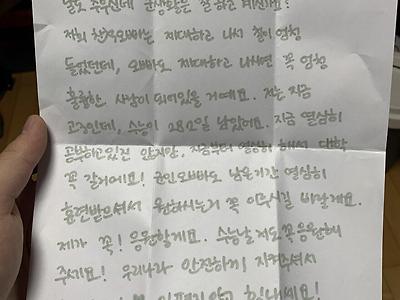 날도 추우신데 군생활은 잘 하고 계신가요?
저희 친척오빠는 제대하고 나서 철이 엄청
들었던데, 오빠도 제대하고 나서면 꼭 엄청
훌륭한 사람이 되어있을 거예요. 저는 지금
고3인데, 수능이 282일 남았어요. 지금 열심히
공부하고있진 않지만, 지금부터 열심히 해서 대학
꼭 갈거에요! 군인오빠도 남은기간 열심히
훈련받으셔서 원하시는거 꼭 이루시길 바랄게요.
제가 꼭! 응원할게요. 수능날 저도 꼭 응원해
주세요! 우리나라 안전하게 지켜주셔서
않고 힘내세요!